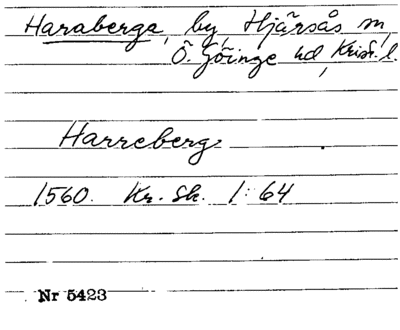 Haraberga, by, Hjärsås sn,
Ö. Göinge hd, Krist. l.
Harreberg
1560. Kr. Sk. 1:64
Nr 5423